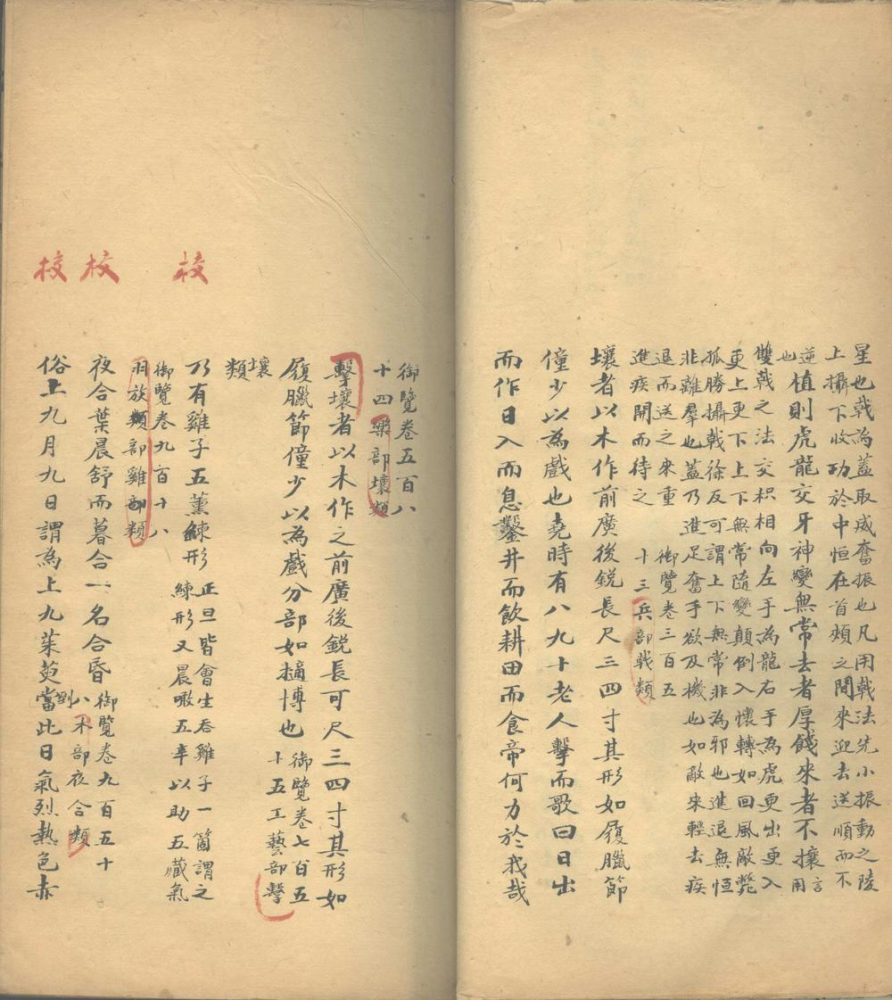 星也戟為蓋取威奮振也凡用戟法先小振動之陵
上攝下收功於中恒在首頰之間來迎去送順而不
逆植則虎龍交牙神變無常去者厚餞來者不攘言用
也
雙戟之法交枳相向左手為龍右手為虎更出更入
更上更下上下無常隨變顛倒入懷轉如回風敵斃
孤勝攝戟徐反可謂上下無常非為邪也進退無恒
非離羣也蓋乃進足奮手欲及機也如敵來輕去疾
退而送之來重御覽卷三百五
進疾開而待之十三兵部戟類
壤者以木作前廣後銳長尺三四寸其形如履臘節
僮少以為戲也堯時有八九十老人擊而歌曰日出
而作日入而息鑿井而飲耕田而食帝何力於我哉
御覽卷五百八
十四樂部壤類
擊壤者以木作之前廣後銳長可尺三四寸其形如
履臘節僮少以為戲分部如擿博也御覽卷七百五
十五工藝部擊
壤
類
乃有雞子五薰練形正旦皆會生吞雞子一箇謂之
練形又晨噉五辛以助五藏氣
御覽卷九百十八
羽族類部雞部類
夜合葉晨舒而暮合一名合昏御覽卷九百五十
八木部夜合類
俗上九月九日謂為上九茱萸當此日氣烈熟色赤
到
校
校
校